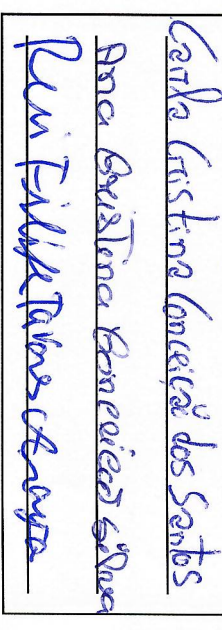 Carla Cristina Conceição dos Santos
Ana Cristina Conceição Silva
Rui Filipe Tavares